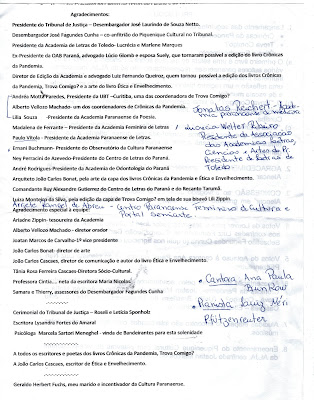 Agradecimentos:
Presidente do Tribunal de Justiça – Desembargador José Laurindo de Souza Netto.
Desembargador José Fagundes Cunha – co-anfitrião do Piquenique Cultural no Tribunal.
Presidente da Academia de Letras de Toledo- Lucrécia e Marlene Marques
Ex-Presidente da OAB Paraná, advogado Lúcio Glomb e esposa Suely, que tornaram possível a edição do livro Crônicas
da Pandemia.
Diretor de Edição da Academia e advogado Luiz Fernando Queiroz, quem tornou possível a edição dos livros Crônicas
da Pandemia, Trova Comigo? e o arte do livro Ética e Envelhecimento.
Andréa Motta Paredes, Presidente da UBT –Curitiba, uma das coordenadoras de Trova Comigo?
Alberto Vellozo Machado- um dos coordenadores de Crônicas da Pandemia.
Lilia Souza -Presidente da Academia Paranaense da Poesia.
Jonatas Reichert - Acade-
mia paranaense de medicina
Madalena de Ferrante – Presidente da Academia Feminina de Letras
Paulo Vítola - Presidente da Academia Paranaense de Letras.
Ernani Buchmann- Presidente do Observatório da Cultura Paranaense
Ney Perracini de Azevedo-Presidente do Centro de Letras do Paraná.
André Rodrigues-Presidente da Academia de Odontologia do Paraná
Lucrecia Welter Ribeiro
Presidente da Associação
das Academias Letras,
Ciencias e Artes do PR
Presidente da Letras de
Toledo.
Arquiteto João Carlos Bonat, pela arte da capa dos livros Crônicas da Pandemia e Ética e Envelhecimento.
Comandante Ruy Alexandre Gutierrez do Centro de Letras do Paraná e do Recanto Tarumã.
Luiza Monteiro da Silva, pela edição da capa de Trova Comigo? em tela de sua bisavó Lili Zippin
Arriete Rangel de Abreu - Centro Paranaense Feminino de Cultura e
Portal Semiarte.
Agradecimento especial à equipe:
Ariadne Zippin- tesoureira da Academia
Alberto Vellozo Machado - diretor orador
Joatan Marcos de Carvalho-1º vice presidente
João Carlos Bonat- diretor de arte
João Carlos Cascaes, diretor de comunicação e autor do livro Ética e Envelhecimento.
Tânia Rosa Ferreira Cascaes-Diretora Sócio-Cultural.
Professora Cintia... neta da escritora Maria Nicolas
Samara e Thierry, assessores do Desembargador Fagundes Cunha
• Cantora Ana Paula
Brunkow
• Pianista
Cerimonial do Tribunal de Justiça – Roseli e Letícia Sponholz
Escritora Lysandro Fortes do Amaral
Psicóloga Marcela Sartori Meneghel - vinda de Bandeirantes para esta solenidade
A todos os escritores e poetas dos livros Crônicas da Pandemia, Trova Comigo?
A João Carlos Cascaes, escritor de Ética e Envelhecimento.
Geraldo Herbert Fuchs, meu marido e incentivador da Cultura Paranaense.